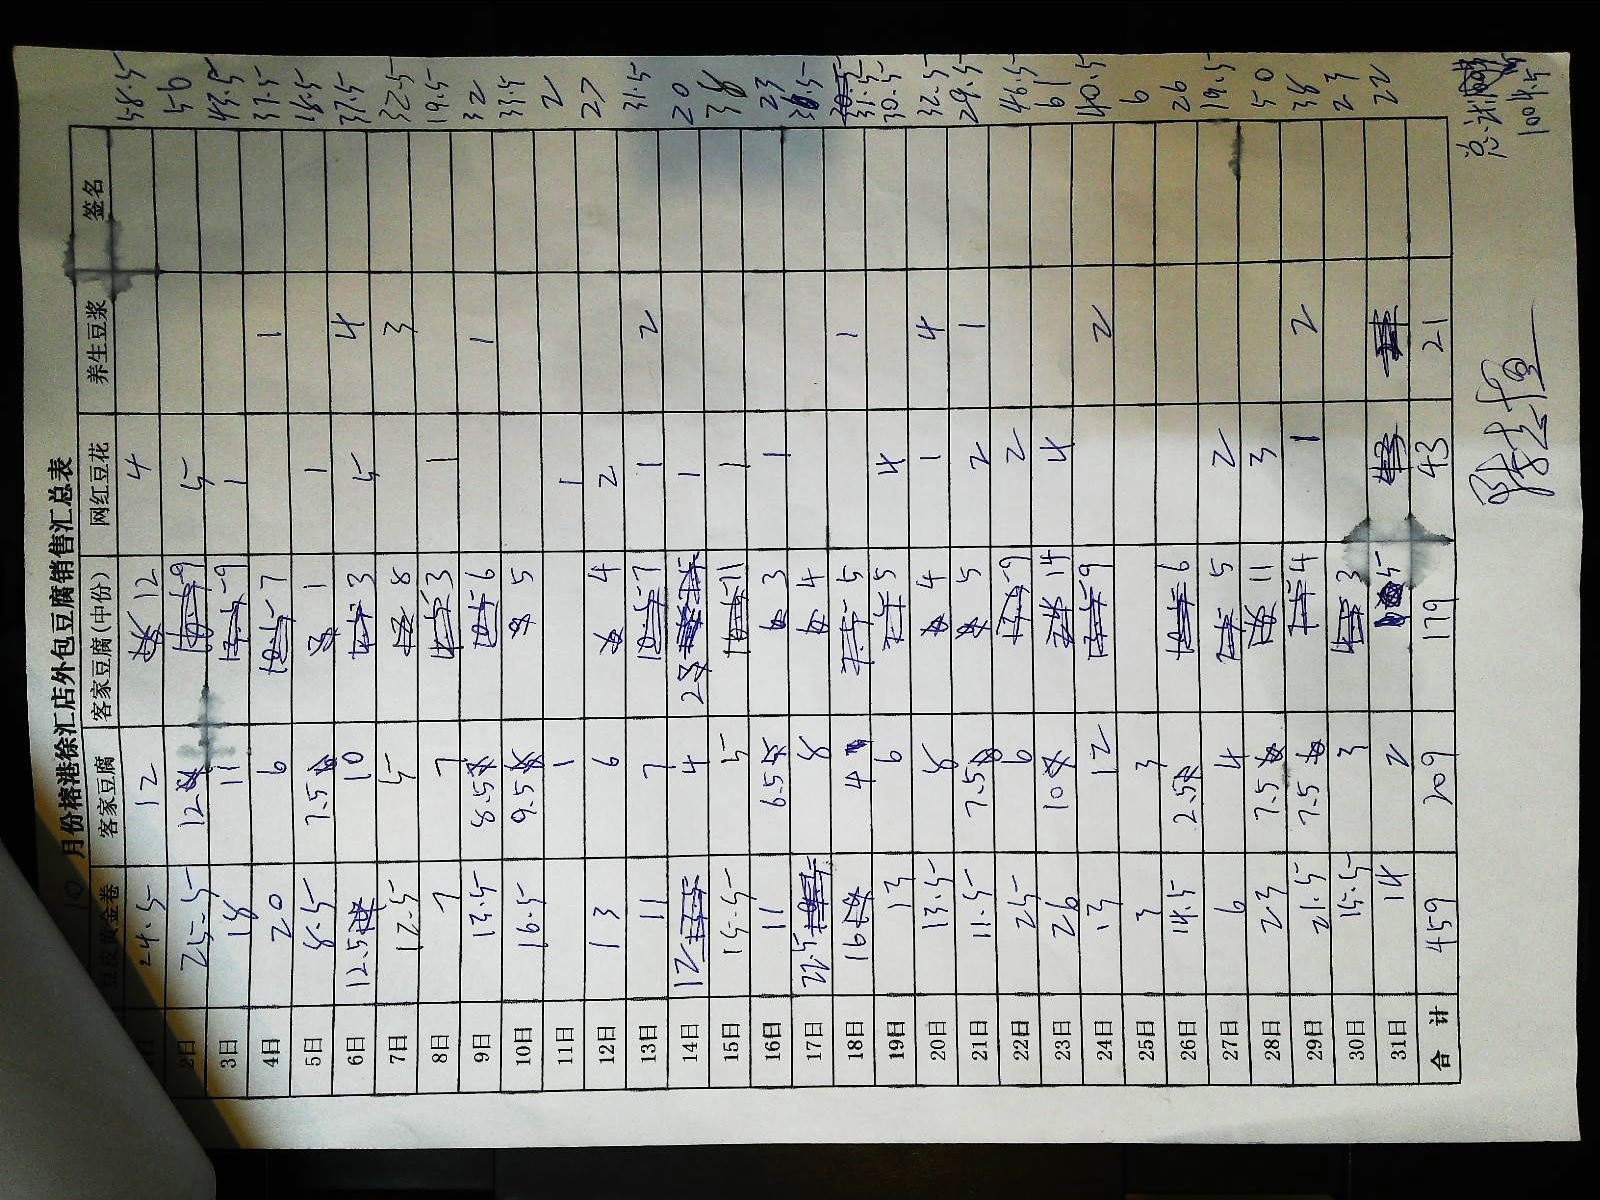 10月份榕港徐汇店外包豆腐销售汇总表
豆皮黄金卷 客家豆腐 客家豆腐(中份) 网红豆花 养生豆浆 签名
1日 24.5 12 12 4 58.5
2日 25.5 12 9 5 56
3日 18 11 9 1 43.5
4日 20 6 7 1 37.5
5日 8.5 7.5 1 1 18.5
6日 12.5 10 3 5 4 37.5
7日 12.5 5 8 3 32.5
8日 7 7 3 1 19.5
9日 13.5 8.5 6 1 32
10日 16.5 9.5 5 33.5
11日 1 1 2
12日 13 6 4 2 27
13日 11 7 7 1 2 31.5
14日 12 4 1 20
15日 15.5 5 11 1 38
16日 11 6.5 3 1 23
17日 22.5 8 4
18日 16 4 5 1 31.5
19日 13 6 5 4 30.5
20日 13.5 8 4 1 4 32.5
21日 11.5 7.5 5 2 1 29.5
22日 25 6 9 2 46.5
23日 26 10 14 4 61
24日 13 12 9 2 40.5
25日 3 3 6
26日 14.5 2.5 6 26
27日 6 4 5 2 19.5
28日 23 7.5 11 3 50
29日 21.5 7.5 4 1 2 38
30日 15.5 3 3 23
31日 14 2 5 22
合计 459 209 179 43 21
总计
1004.5